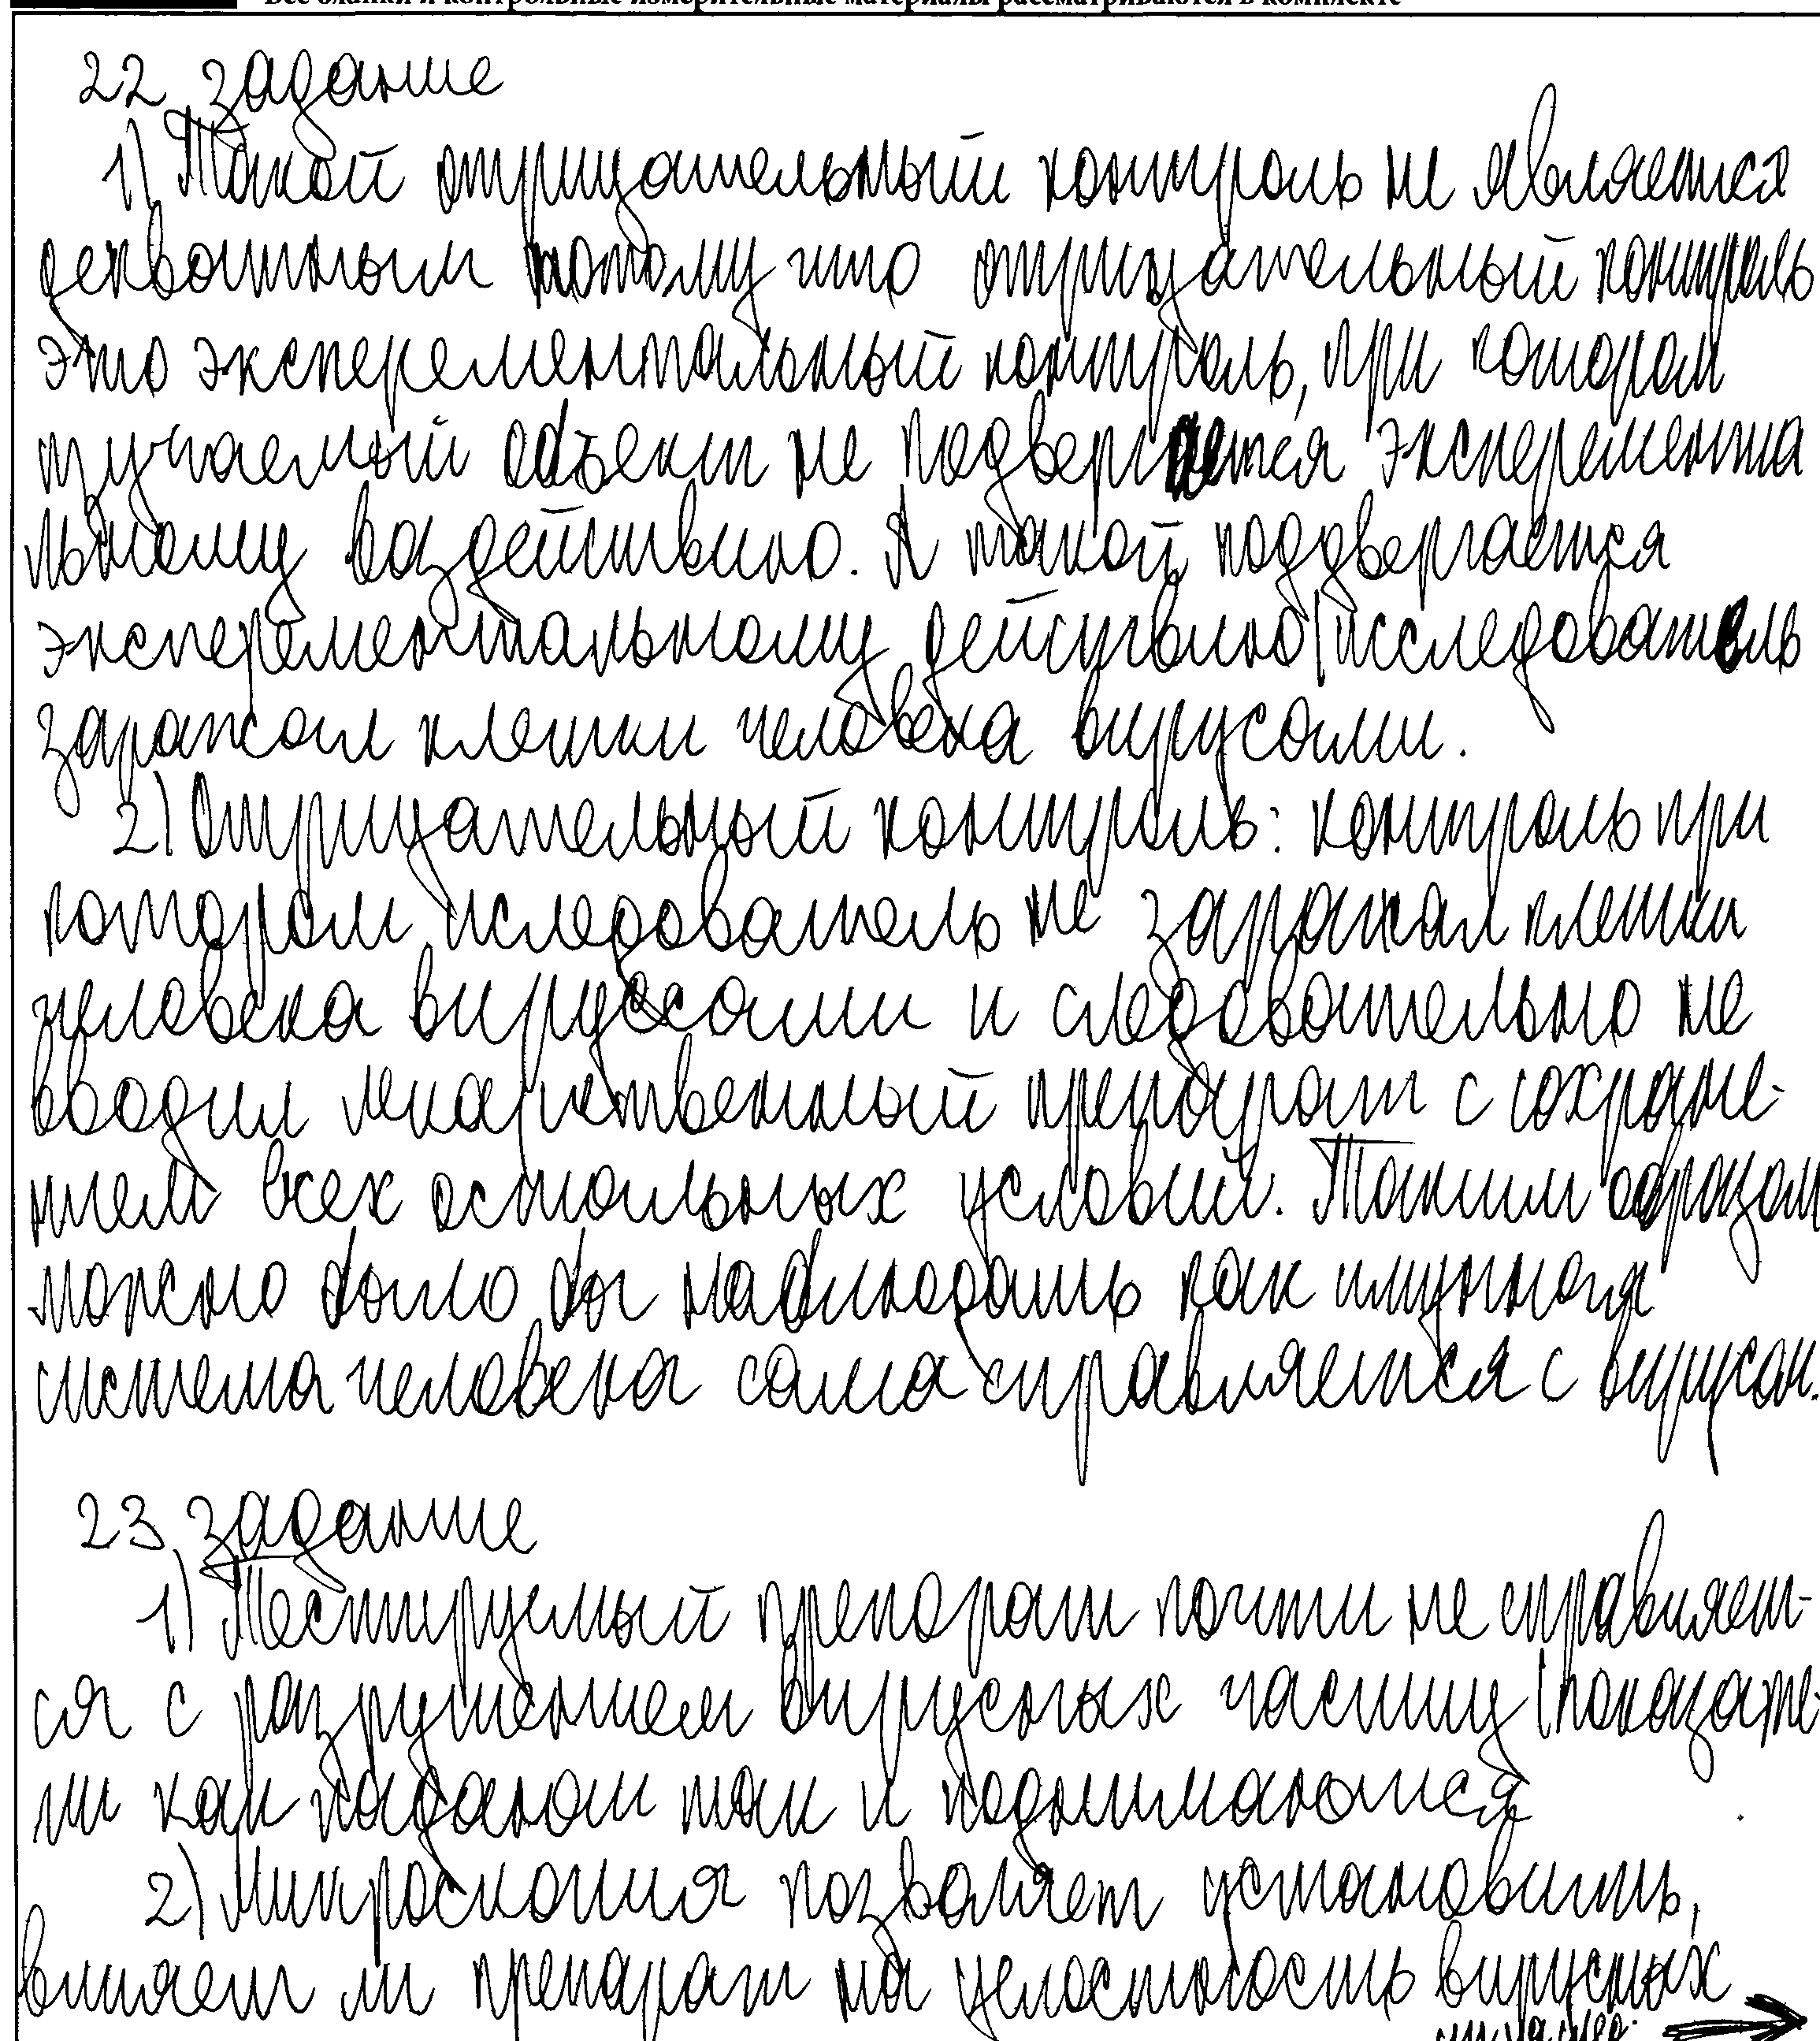 Все бланки и контрольные измерительные материалы рассматриваются в комплекте
22 задание
1) Такой отрицательный контроль не является
декватным потому что отрицательный контроль
это эксперементальный контроль, при котором
изучаемый объект не подвергается эксперемента
льному воздействию. А такой поддвергается
эксперементальному действию (исследователь
заражал клетки человека вирусами.
2) Отрицательный контроль: контроль при
котором иследователь не заражал клетки
человека вируссами и следовательно не
вводил лекарственный препарат с сохране-
нием всех остальных условий. Таким образом
можно было бы наблюдать как имунная
система человека сама справляется с вирусом.
23 задание
1) Тестируемый препарат почти не справляет-
ся с разрушением вирусных частиц (показате-
ли как падают так и поднимаются
2) Микроскопия позволяет установить,
влияет ли препарат на целостность вирусных